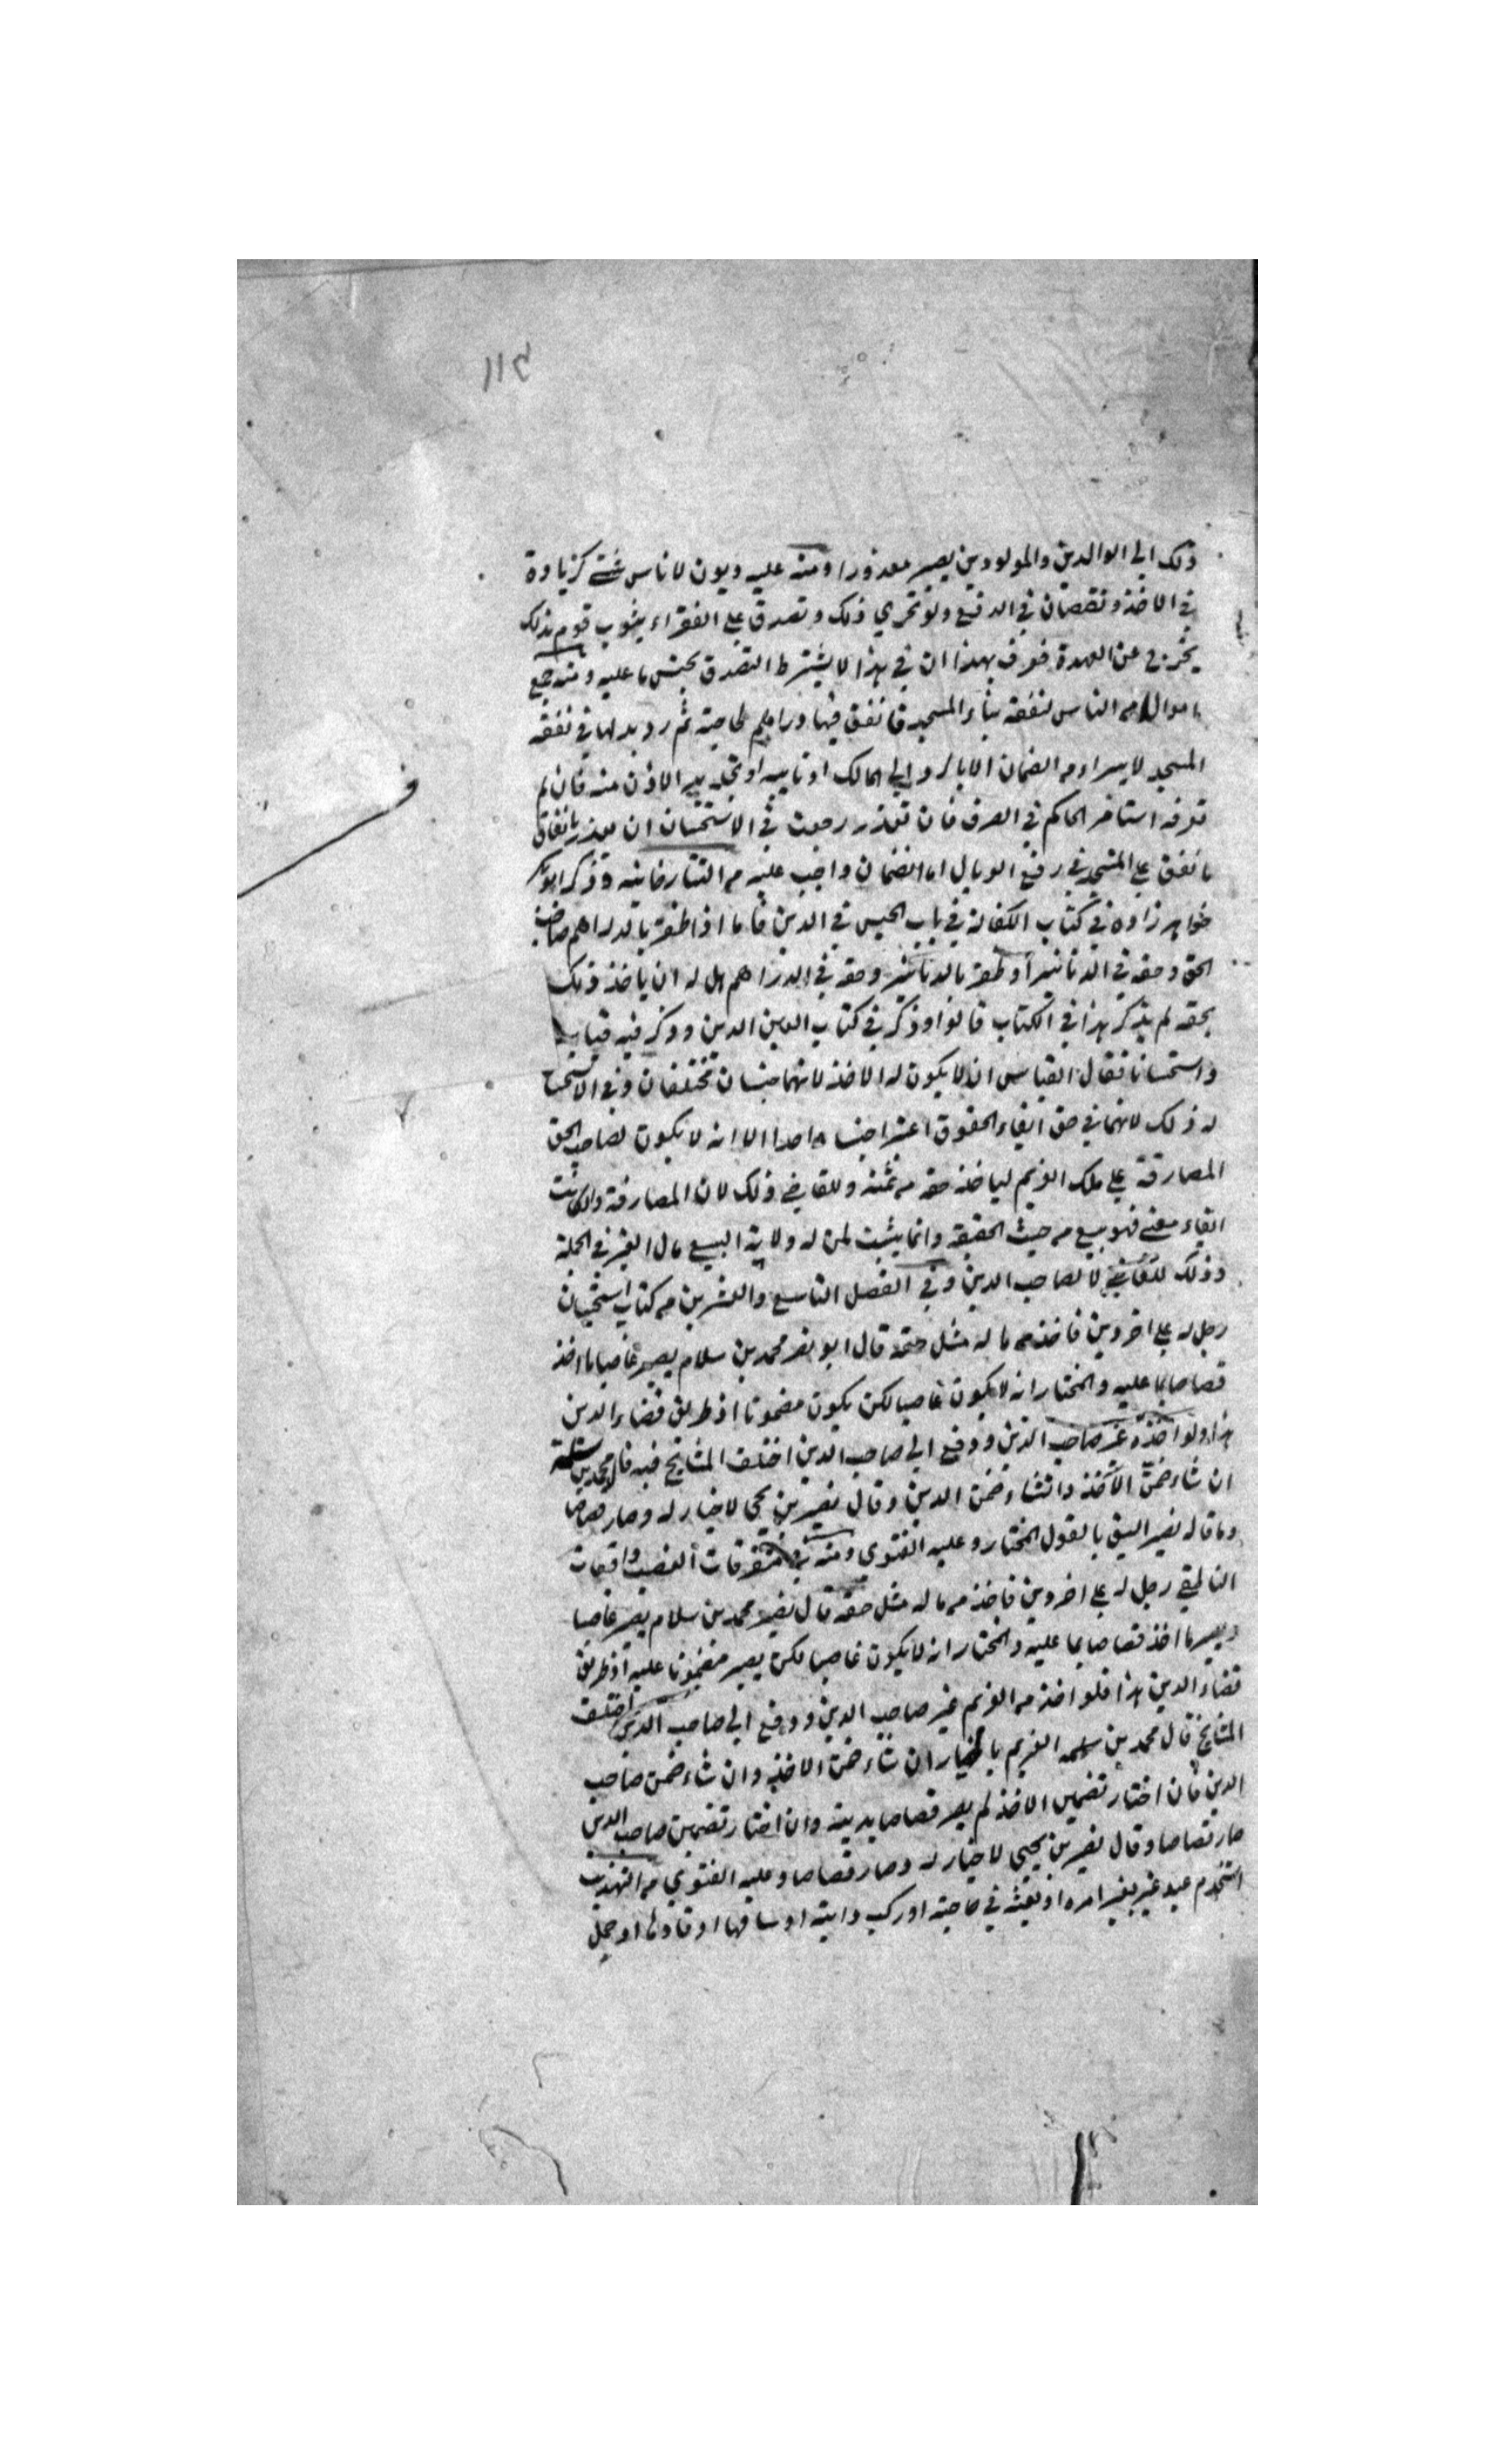 ١١٥
ذلك الى الوالدين والمولودين يصير معذورا ومنه عليه ديون لاناس شتى كزيادة
في الاخذ ونقصان في الدفع ولو تحرى ذلك وتصدق على الفقراء بثوب قوم بذلك
يخرج عن العهدة فعرف بهذا ان في هذا لا يشترط التصدق بجنس ما عليه ومنه جمع
اموالا من الناس لنفقة بناء المسجد فانفق فيها دراهم لحاجته ثم رد بدلها في نفقة
المسجد لا يبراء من الضمان الا بالرد الى المالك او نايبه او تجديد الاذن منه فان لم
تعرفه استأمر الحاكم في الصرف فان تعذر رجوت في الاستحسان ان يعذر بانفاق
ما انفق على المسجد في رفع الوبال اما الضمان واجب عليه من التتارخانيه وذكر ابو بكر
خواهر زاده في كتاب الكفالة في باب الحبس في الدين فاما اذا ظفر بالدراهم صاحب
الحق وحقه في الدنانير او ظفر بالدنانير وحقه في الدراهم هل له ان ياخذ ذلك
بحقه لم يذكر هذا في الكتاب قالوا وذكر في كتاب العين الدين وذكر فيه قياسا
واستحسانا فقال القياس ان لا يكون له الاخذ لانهما جنسان مختلفان وفي الاستحسا
له ذلك لانهما في حق ايفاء الحقوق اعتبرا جنسا واحدا الا انه لا يكون لصاحب الحق
المصارفة على ملك الغريم لياخذ حقه من ثمنه وللقاضي ذلك لان المصارفة وان كانت
ايفاء معنى فهو بيع من حيث الحقيقة وانما يثبت لمن له ولاية البيع مال الغير في الجملة
وذلك للقاضي لا لصاحب الدين وفي الفصل التاسع والعشرين من كتاب استحسان
رجل له على اخر دين فاخذ من ماله مثل حقه قال ابو نصر محمد بن سلام يصير غاصبا ما اخذ
قصاصا بما عليه والمختار انه لا يكون غاصبا لكن يكون مضمونا اذ طريق قضاء الدين
هذا ولو اخذه غير صاحب الدين ودفع الى صاحب الدين اختلف المشايخ فيه قال محمد بن سلمة
ان شاء ضمن الآخذ وان شاء ضمن الدين وقال نصير بن يحيى لا خيار له وصار قصاصا
وما قاله نصير اليق بالقول المختار وعليه الفتوى ومنه في متفرقات الغصب واقعات
الناطفي رجل له على اخر دين فاخذ من ماله مثل حقه قال نصير محمد بن سلام يصير غاصبا
ويصير ما اخذ قصاصا بما عليه والمختار انه لا يكون غاصبا لكن يصير مضمونا عليه اذ طريق
قضاء الدين هذا فلو اخذ من الغريم غير صاحب الدين ودفع الى صاحب الدين اختلف
المشايخ قال محمد بن سلمه الغريم بالخيار ان شاء ضمن الاخذ وان شاء ضمن صاحب
الدين فان اختار تضمين الاخذ لم يصر قصاصا بدينه وان اختار تضمين صاحب الدين
صار قصاصا وقال نصير بن يحيى لا خيار له وصار قصاصا وعليه الفتوى من التهذيب
استخدم عبد غير بغير امره او بعثه في حاجته او ركب دابته او ساقها او قادها او حمل